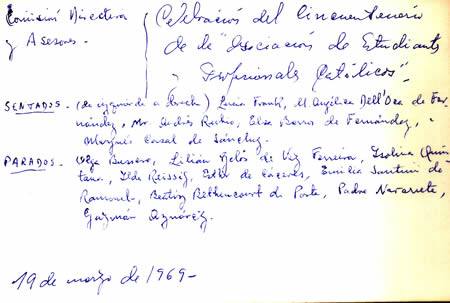 Comisión Directiva
y Asesores.
Celebración del Cincuentenario
de la "Asociación de Estudiantes
y Profesionales Católicos".
SENTADOS. (de izquierda a derecha) Lucía Frank, M. Angélica Dell'Oca de Fer-
nández, Mr. Andrés Rubio, Elsa Barros de Fernández,
Margué Casal de Sánchez.
PARADOS. Olga Busero, Lilián Gelós de Vaz Ferreira, Isolina Quin-
tana, Ilda Reissig, Esther de Cáceres, Emilia Santini de
Ramond, Beatriz Béthencourt de Ponte, Padre Navarrete,
Guzmán Aznárez.
19 de marzo de 1969-